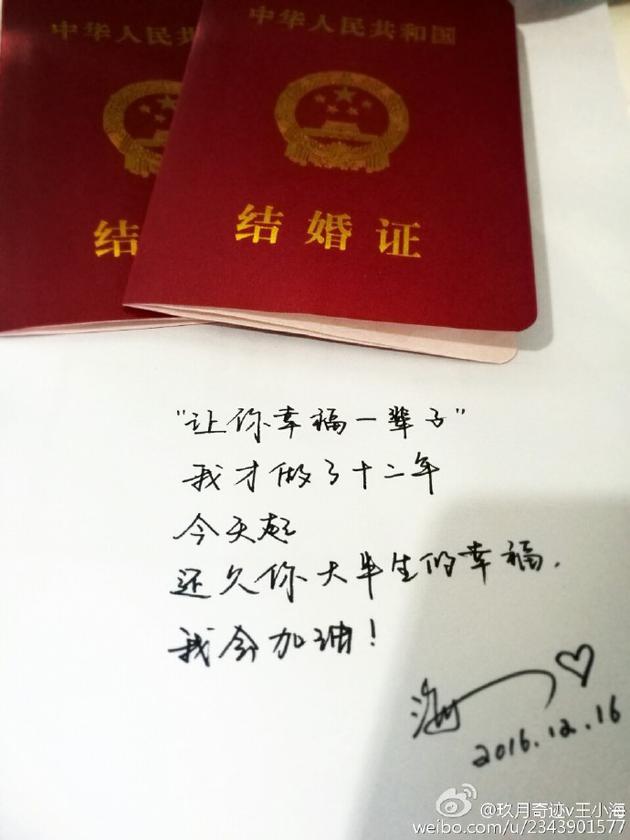 中华人民共
中华人民共和国
结
结婚证
"让你幸福一辈子"
我才做了十二年
今天起
还久你大半生的幸福.
我会加油!
海
2016.12.16
@玖月奇迹v王小海
weibo.com/u/2343901577